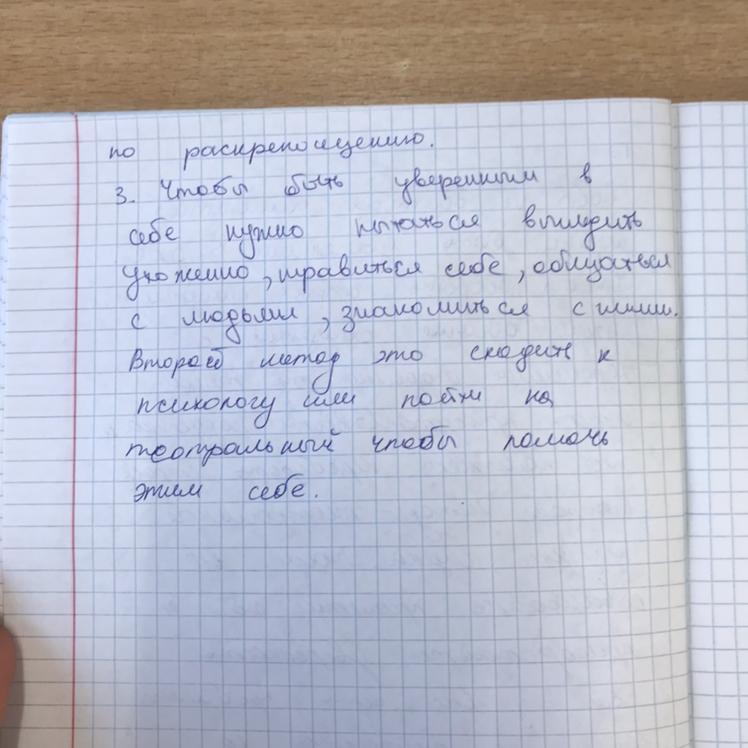 по раскрепощению.
3. Чтобы быть уверенным в
себе нужно пытаться выглядить
ухоженно, нравиться себе, общаться
с людьми, знакомиться с ними.
Второй метод это сходить к
психологу или пойти на
театральный чтобы помочь
этим себе.